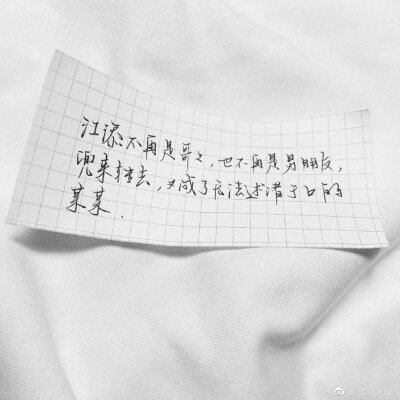 江添不再是哥々，也不再是男朋友，
兜来转去，又成了无法述诸于口的
某某.